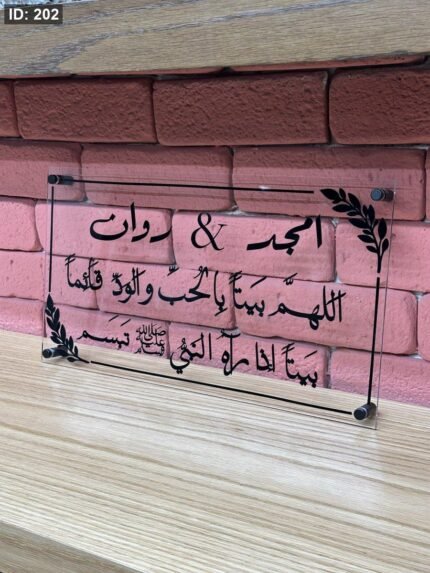 ID: 202
امجد & روان
اللهمَّ بَيتاً بِالحُبِّ والوِدِّ قائِماً
بَيتاً إذا رآهُ النبيُّ ﷺ تَبَسَم